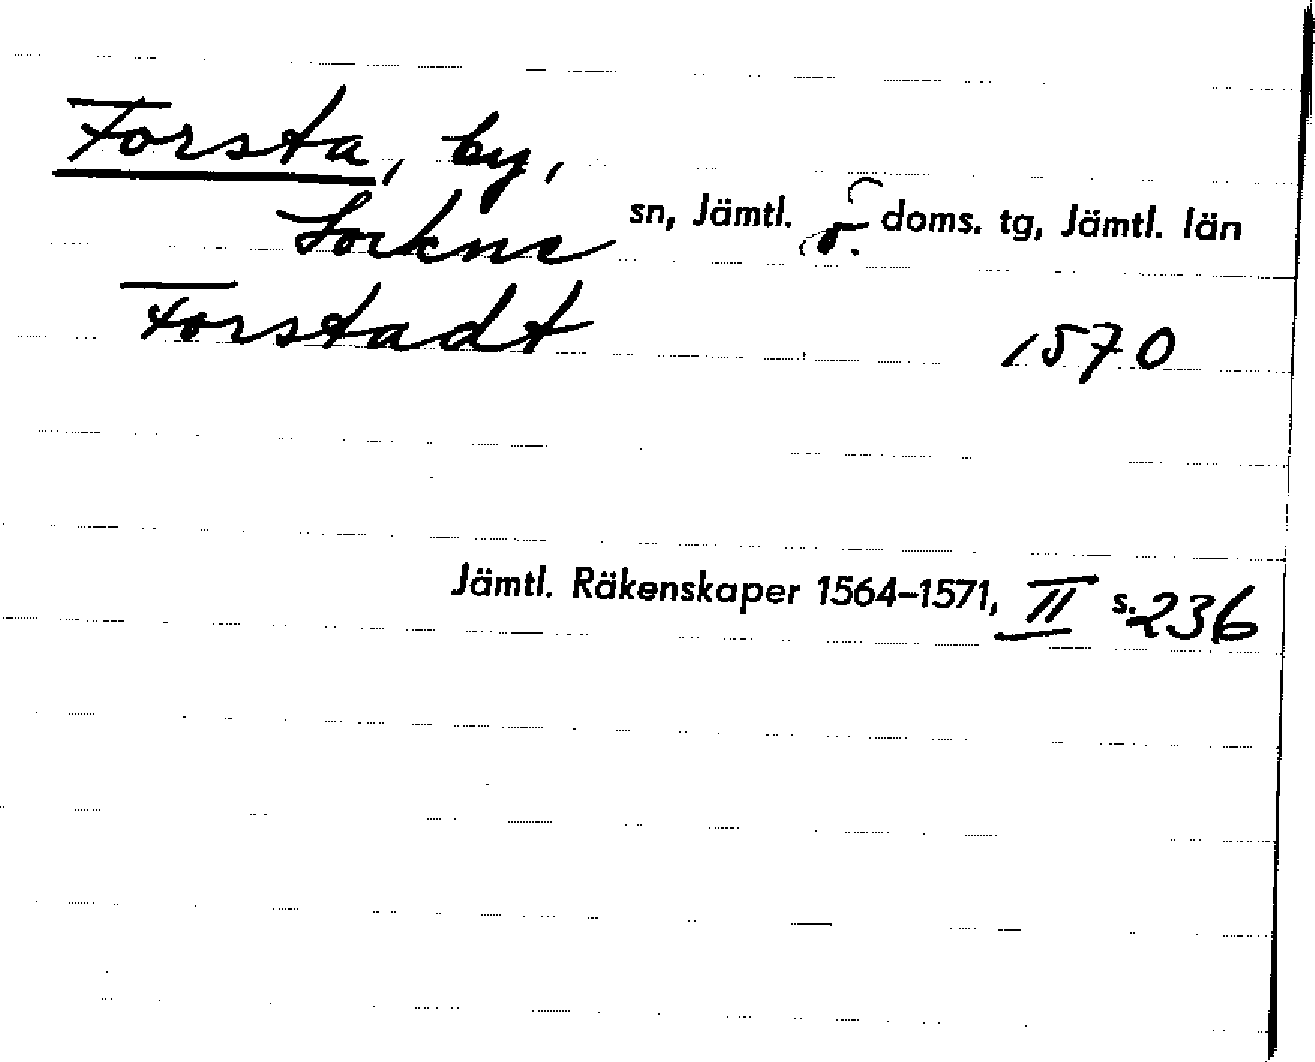 Forsta, by,
Lockne sn, Jämtl. v. doms. tg, Jämtl. län
Forstadt 1570
Jämtl. Räkenskaper 1564–1571, II s. 236